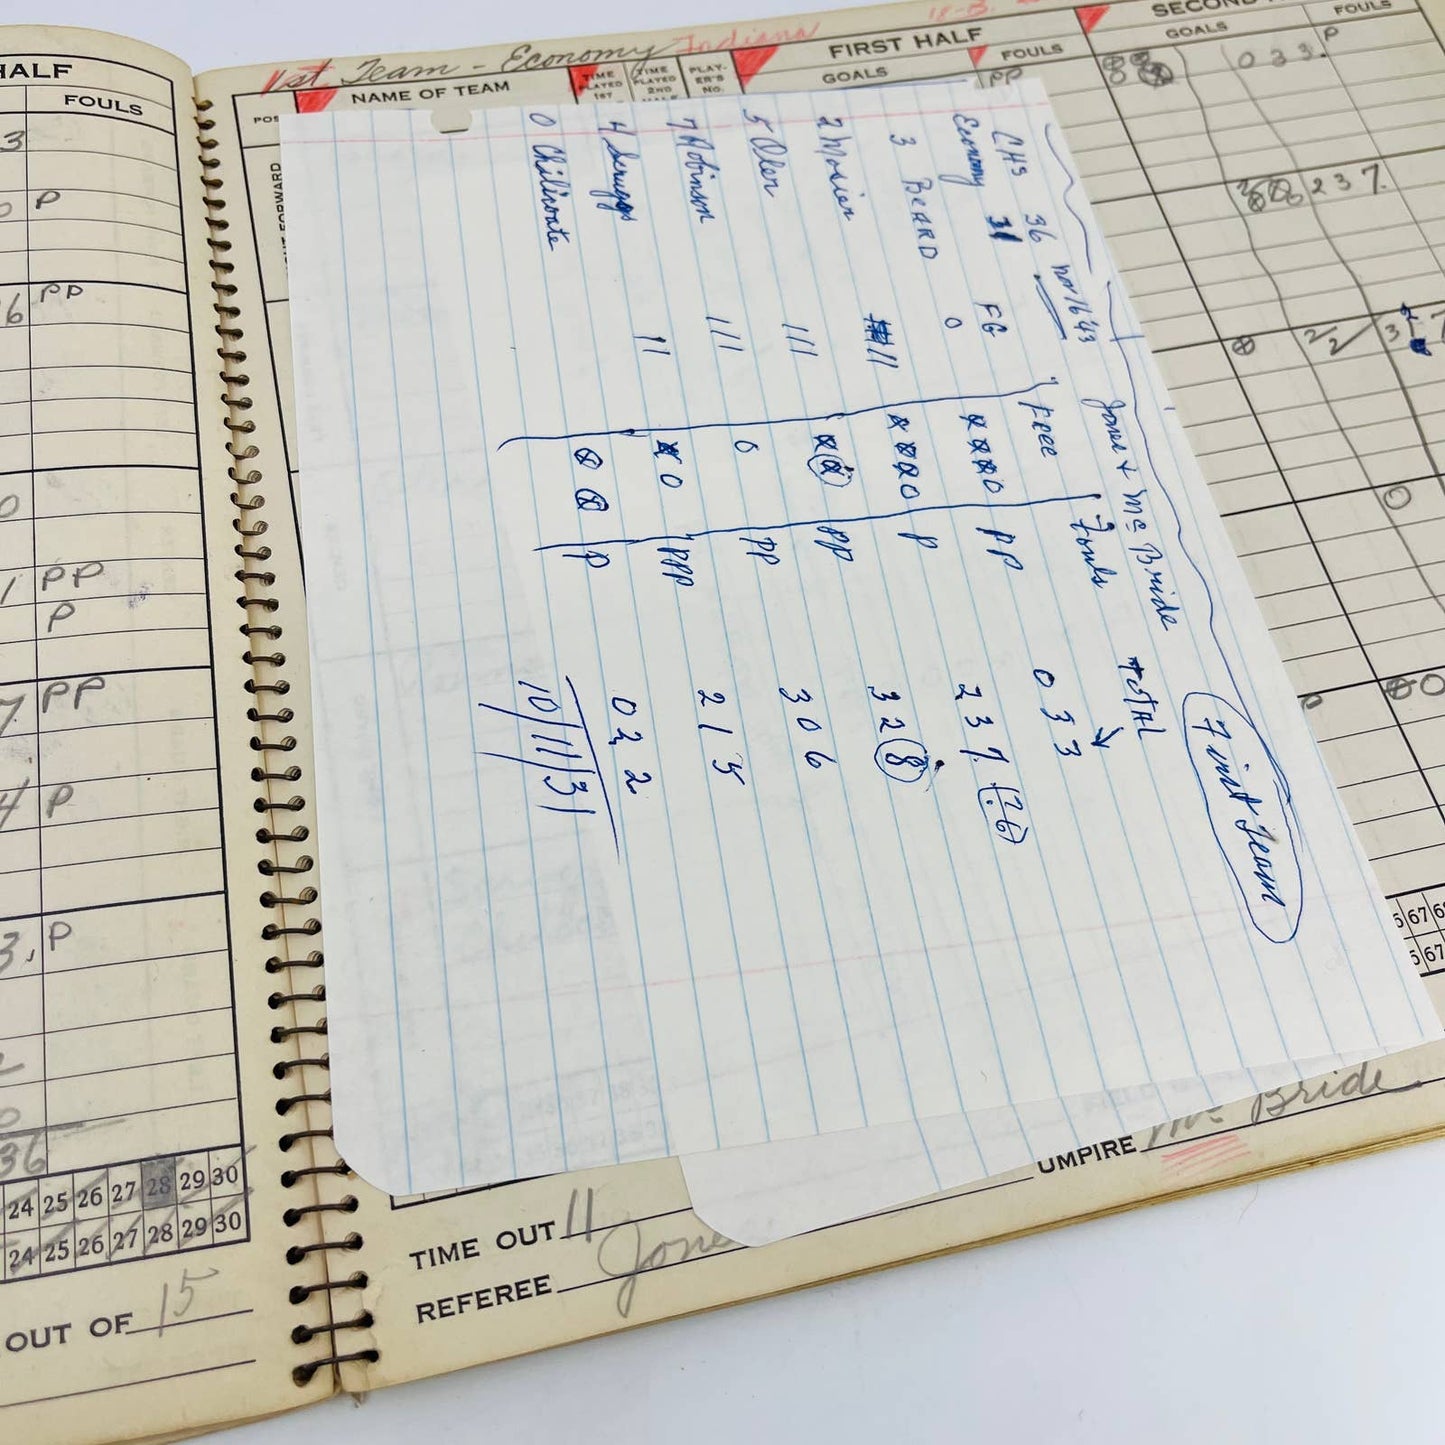 HALF
FOULS
3
P
6 PP
0
1 PP
P
7. PP
4 P
3. P
36
24 25 26 27 28 29 30
24 25 26 27 28 29 30
OUT OF 15
1st Team - Economy Indiana
NAME OF TEAM
TIME PLAYED 1ST
TIME PLAYED 2ND
PLAY- ER'S NO.
FIRST HALF
GOALS
FOULS
PP
GOALS
FOULS
0 3 3. P
2 3 7.
First Team
Jones + Mc Bride
CHS 36 Nov 16 '43
Economy 31 FG Free Fouls TOTAL
3 BEARD 0 XXX0 PP 0 3 3
2 Mosier 11 XXX0 P 2 3 7. (26)
5 Oler 111 PP 3 2 8
7 Robinson 111 0 PP 3 0 6
4 Scruggs 11 X0 PPP 2 1 5
0 P 0 2 2
10/11/31
67
67
TIME OUT 11
REFEREE Jone
UMPIRE Mc Bride